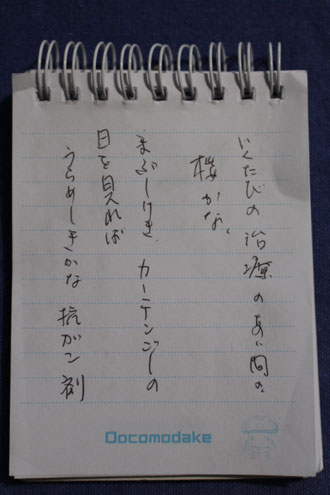 いくたびの治療のあい間の
桜かな。
まぶしけき カーテンごしの
日を見れば
うらめしきかな 抗ガン剤
Docomodake